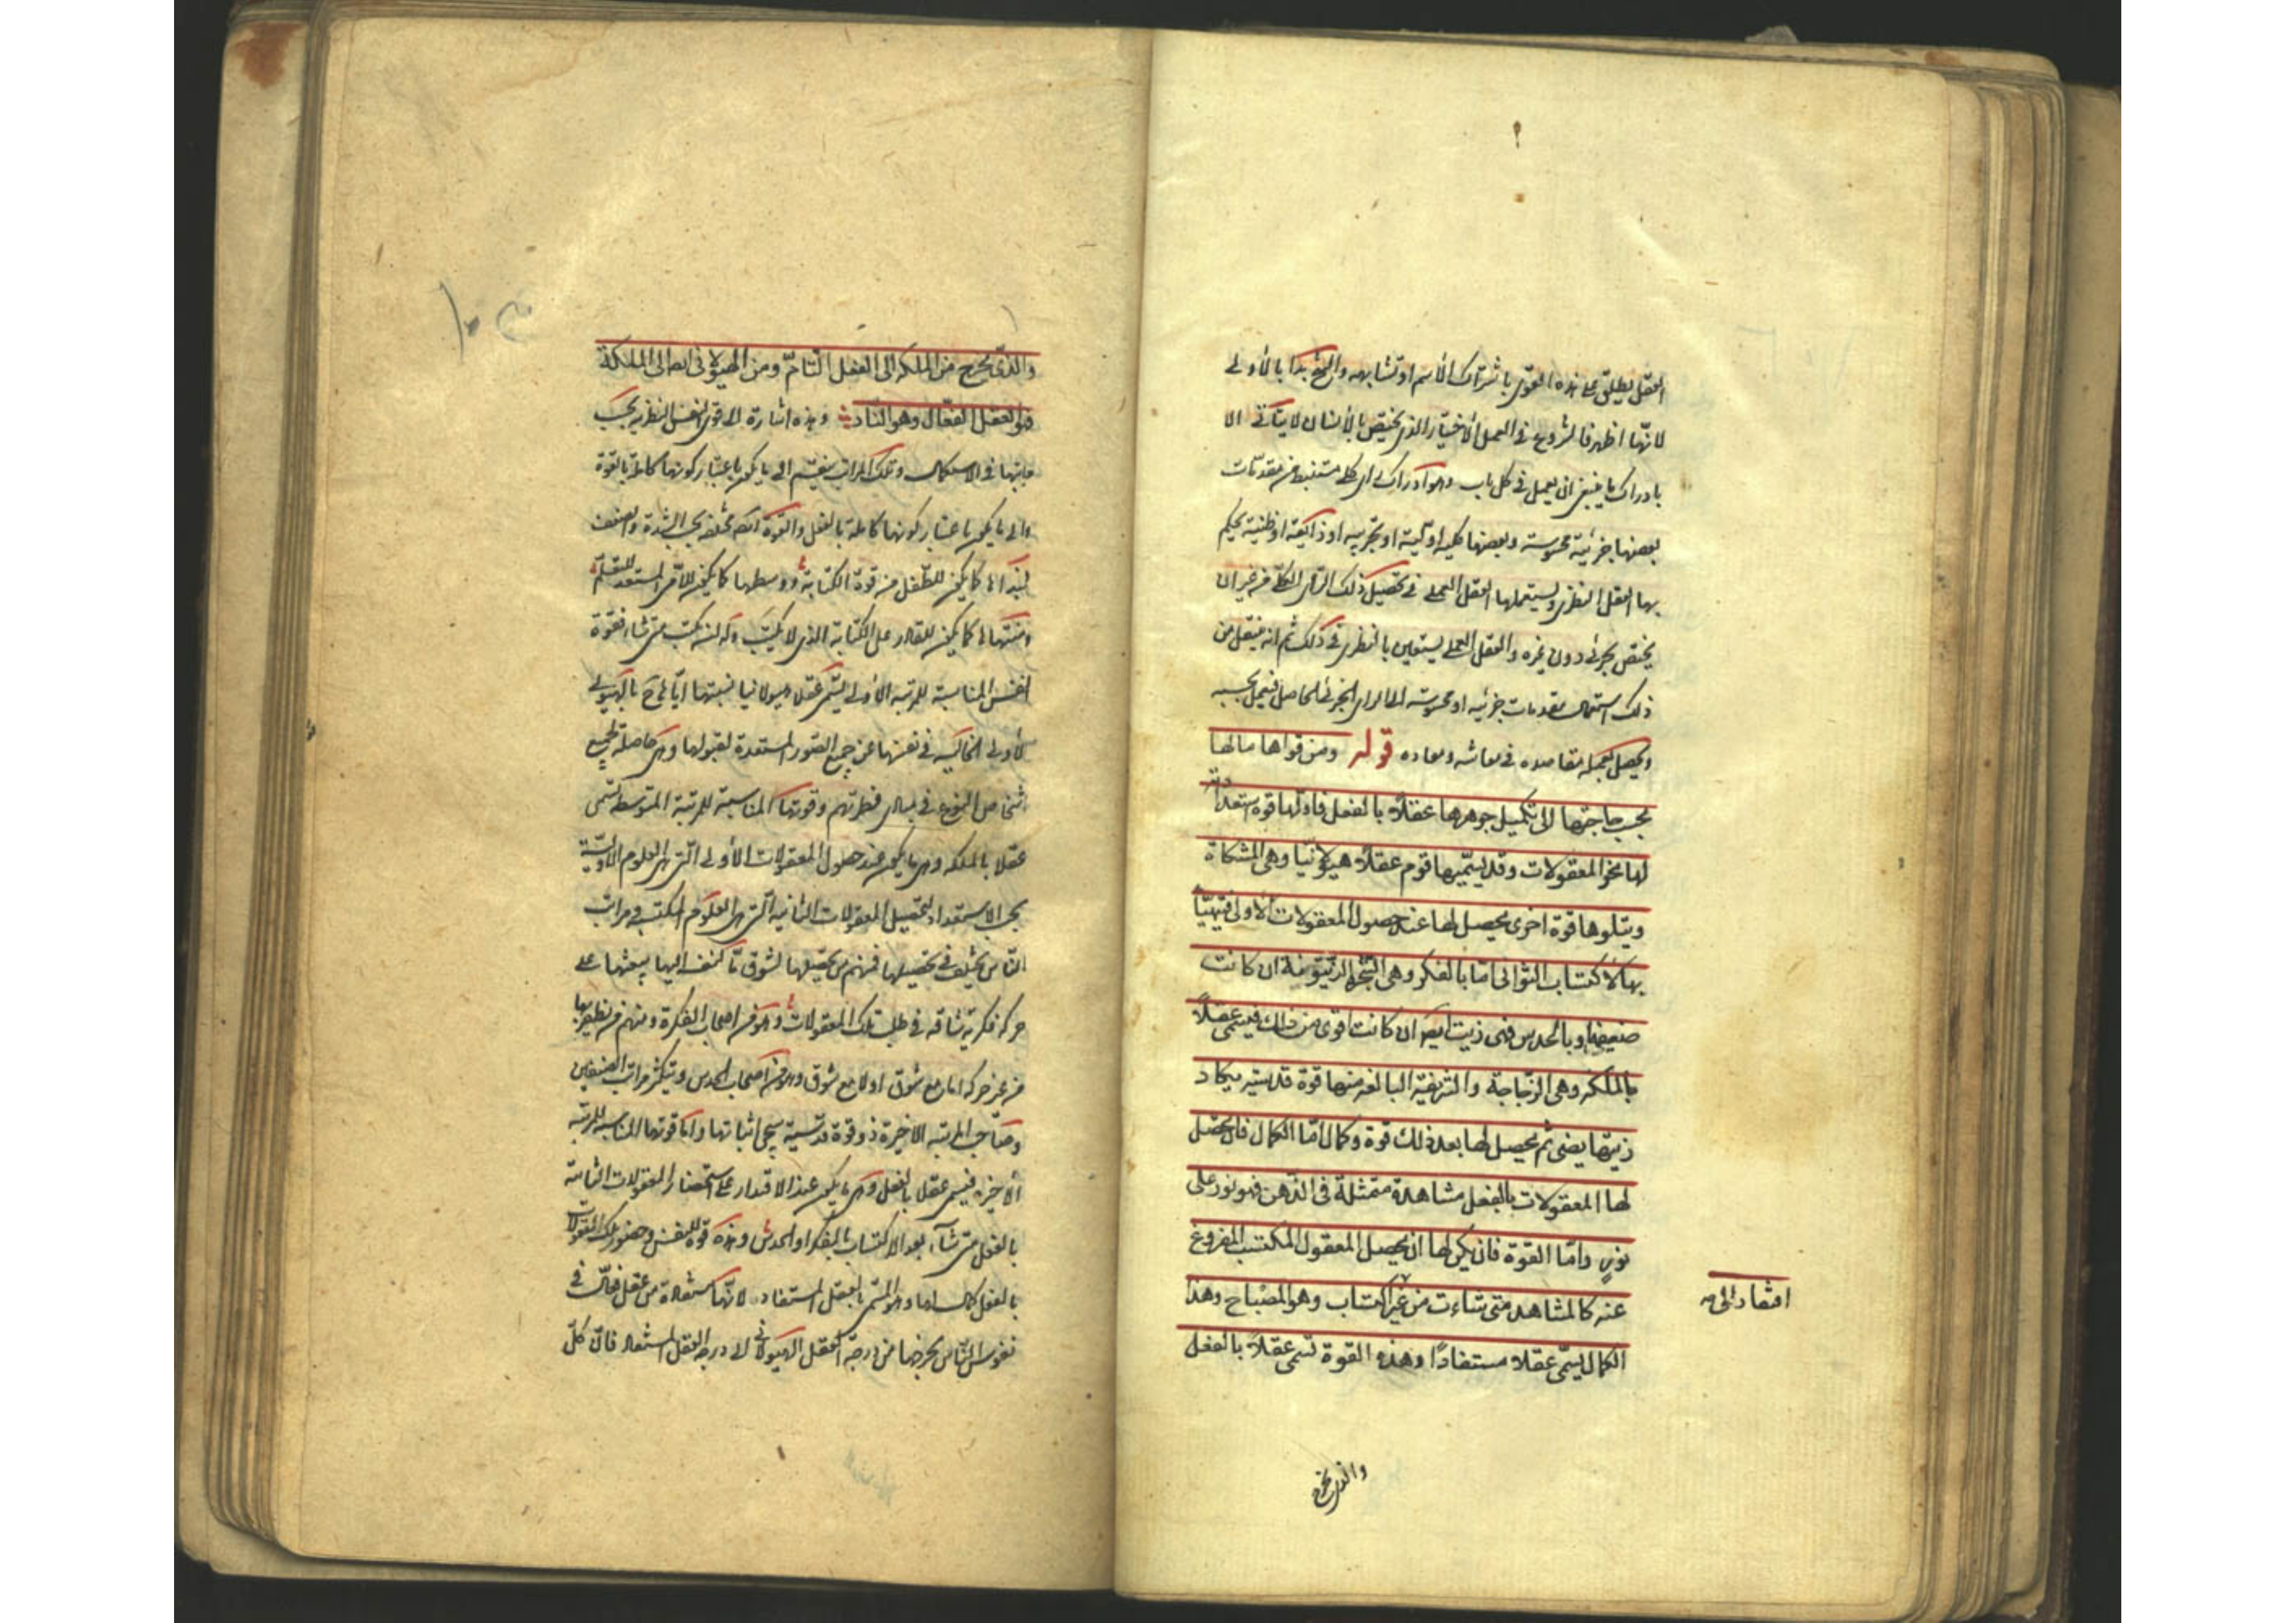 العقل يطلق على هذه القوى باشتراك الأسم او تشابهه والشرح بدا بالأولى
لانها اظهر فالشروع في العمل الأختياري الذي يختص بالأنسان لا يتاتى الا
بادراك ما ينبغي ان يعمل في كل باب وهو ادراك راي كلي مستنبط من مقدمات
بعضها جزئية محسوسة وبعضها كلية اولية او تجربية او ذايعة او ظنية يحكم
بها العقل النظري ويستعملها العقل العملي في تحصيل ذلك الراى الكلي من غير ان
يختص بجزئي دون غيره والعقل العملي يستعين بالنظري في ذلك ثم انه ينتقل من
ذلك باستعمال مقدمات جزئيه او محسوسة الى الراى الجزئي الحاصل فيعمل بحسبه
ويحصل بعمله مقاصده في معاشه ومعاده قوله ومن قواها مالها
بحسب حاجتها الى تكميل جوهرها عقلاً بالفعل فاولها قوة استعدادية
لها نحو المعقولات وقد يسمّيها قوم عقلاً هيولانيا وهى المشكاة
ويتلوها قوة اخرى يحصل لها عند حصول المعقولات الأولى فتتهيّأ
بها لاكتساب الثوانى امّا بالفكر وهى الشجرة الزيتونة ان كانت
ضعيفة او بالحدس فهى زيت ايضا ان كانت اقوى من ذلك فيسمى عقلاً
بالملكة وهى الزجاجة والشريفة البالغة منها قوة قدسية يكاد
زيتها يضئ ثم يحصل لها بعد ذلك قوة وكمال امّا الكمال فان يحصل
لها المعقولات بالفعل مشاهدة متمثلة فى الذهن فهو نور على
نور وامّا القوة فان يكن لها ان يحصل المعقول المكتسب المفروغ
عنه كالمشاهد متى شاءت من غير اكتساب وهو المصباح وهذا
الكمال يسمّى عقلا مستفادًا وهذه القوة تسمى عقلاً بالفعل
والذي يخرج
والذّى يخرج من الملكه الى الفعل التامّ ومن الهيولانى ايضا الى الملكة
فهو العقل الفعّال وهو النّار وهذه اشارة الى قوى النفس النظرية بحسب
مراتبها في الاستكمال وتلك المراتب ينقسم الى ما يكون باعتبار كونها كاملة بالقوة
والى ما يكون باعتبار كونها كاملة بالفعل والقوة ايضا مختلفة بحسب الشدة والضعف
فمبدأها كما يكون للطفل من قوة الكتابة ووسطها كما يكون للامّى المستعد للتعلّم
ومنتهاها كما يكون للقادر على الكتابة الذي لا يكتب وله ان يكتب متى شاء فقوة
النفس المناسبة للمرتبة الأولى يسمّى عقلا هيولانيا تشبيها ايّاها ح بالهيولى
الأولى الخالية في نفسها عن جميع الصور المستعدة لقبولها وهى حاصلة لجميع
اشخاص النوع في مبادي فطرتهم وقوتها المناسبة للمرتبة المتوسطة تسمّى
عقلا بالملكه وهي ما يكون عند حصول المعقولات الأولى التى هى العلوم الأوليّة
بحسب الاستعداد لتحصيل المعقولات الثانية التى هى العلوم المكتسبة ومراتب
الناس يختلف في تحصيلها فمنهم من يحصّلها لشوق ما لنفسه اليها يبعثها على
حركة فكرية شاقه في طلب تلك المعقولات وهو من اصحاب الفكرة ومنهم من يظفر بها
من غير حركة اما مع شوق او لا مع شوق وهو من اصحاب الحدس ويتكثر مراتب الصنفين
وصاحب المرتبه الأخيرة ذو قوة قدسية سيجئ اثباتها واما قوتها المناسبه للمرتبة
الأخيرة فيسمى عقلا بالفعل وهي ما يكون عند الاقتدار على استحضار المعقولات الثانية
بالفعل متى شاء بعد الاكتساب بالفكر او الحدس وهذه قوة للنفس وحضور تلك المعقولات
بالفعل كمال لها وهو المسمّى بالعقل المستفاد لانّها مستفادة من عقل فعّال في
نفوس النّاس يخرجها من درجة العقل الهيولانى الى درجة العقل المستفاد فانّ كلّ